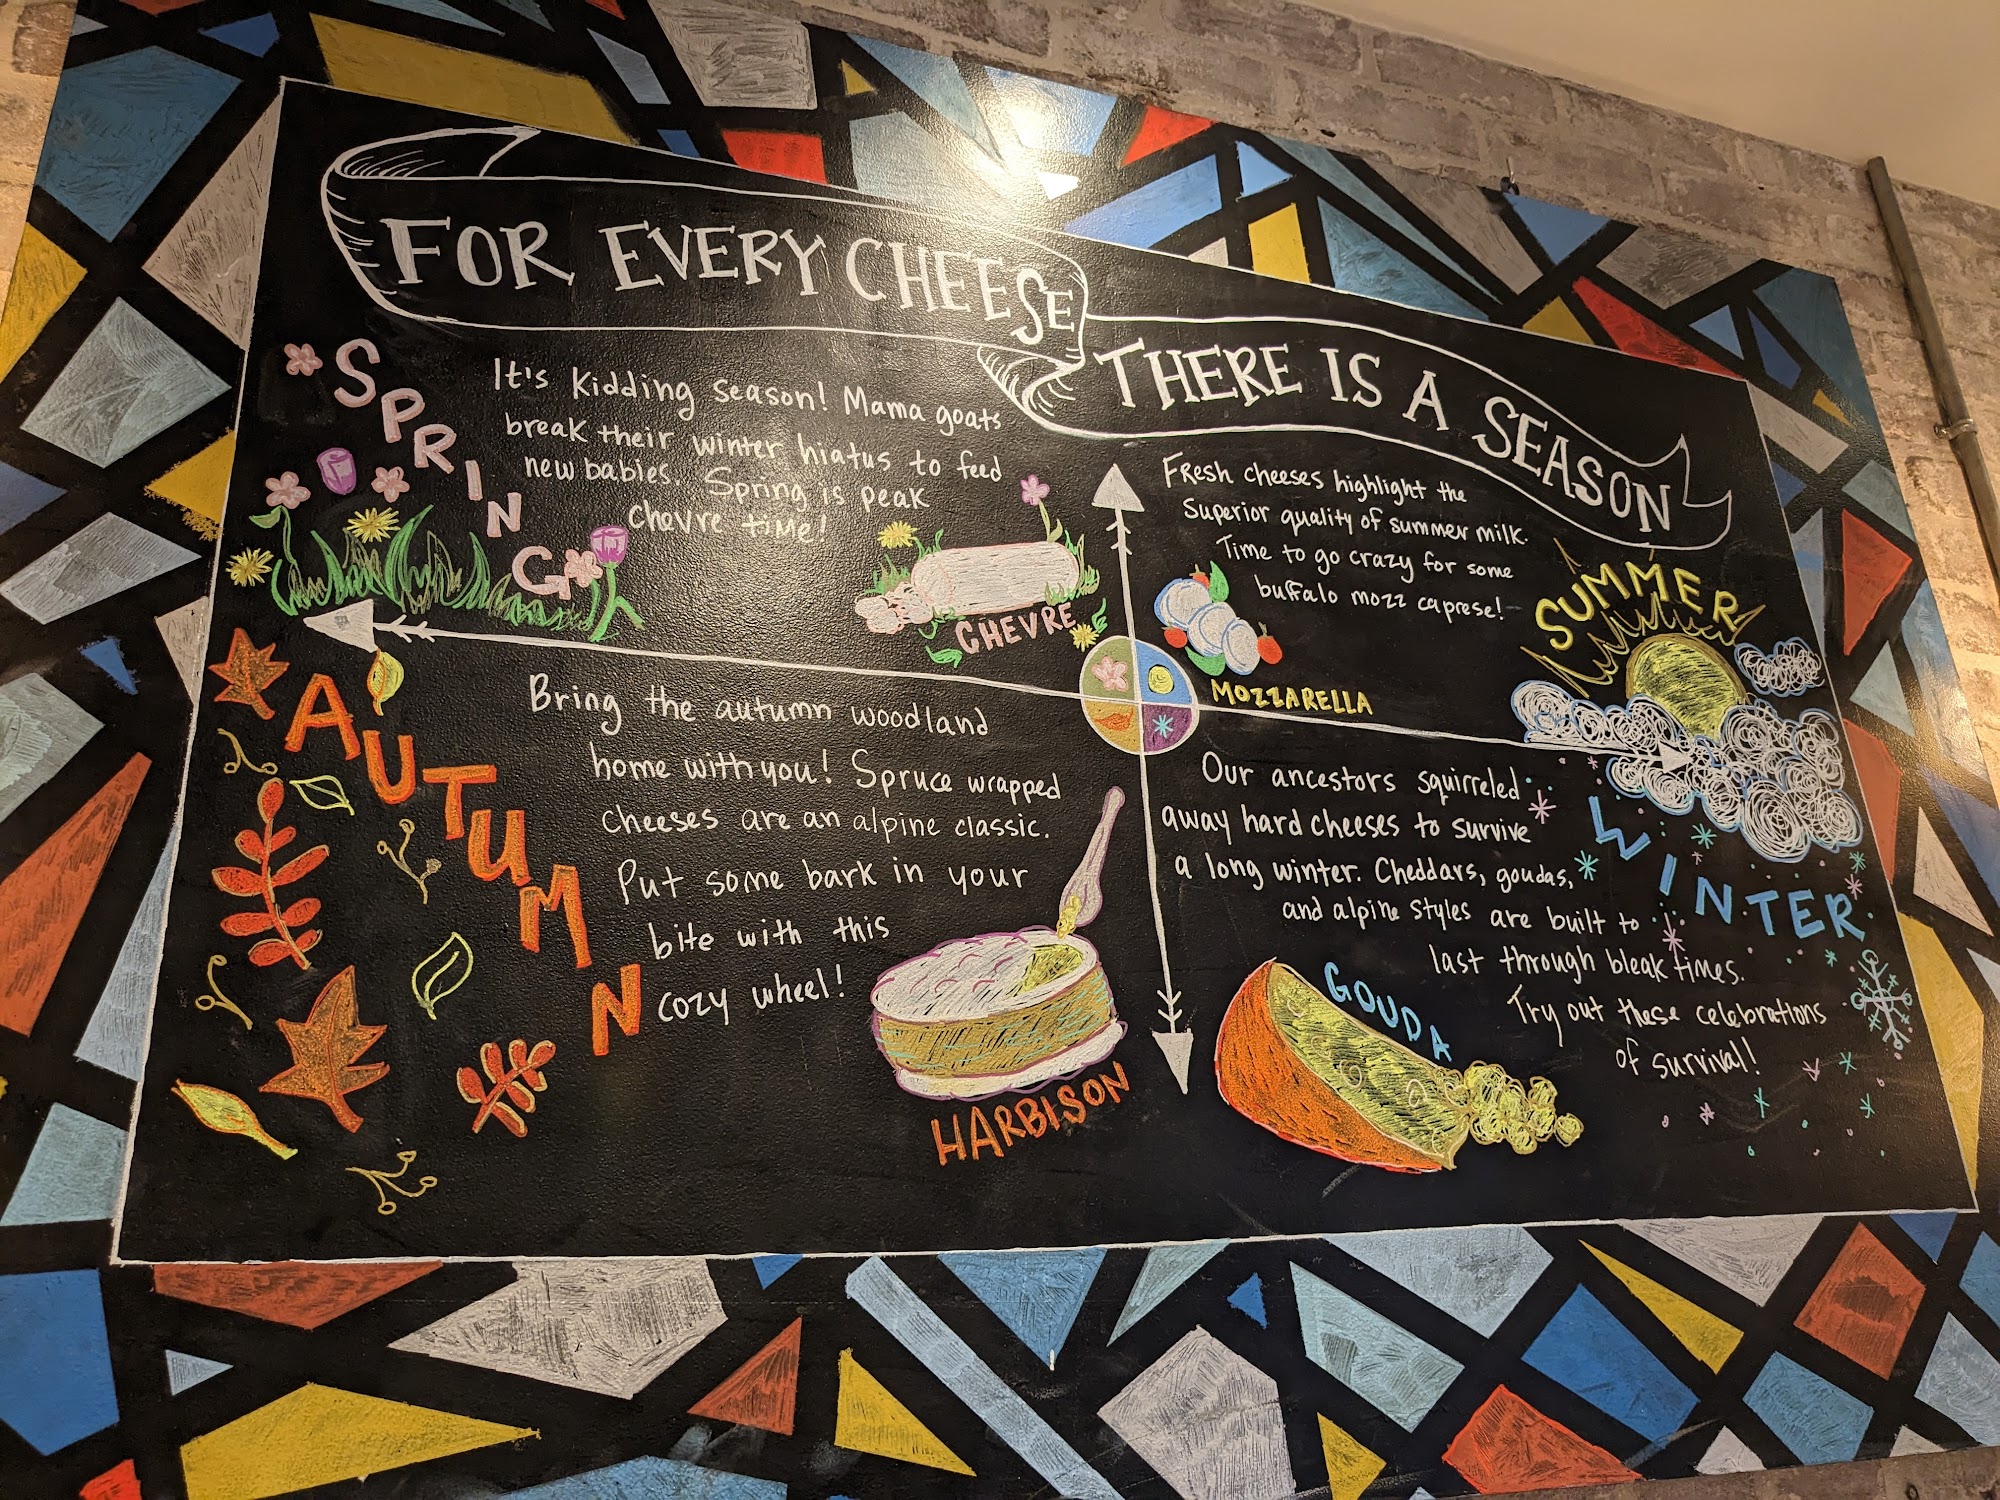 FOR EVERY CHEESE
THERE IS A SEASON
SPRING
It's kidding season! Mama goats
break their winter hiatus to feed
new babies. Spring is peak
chevre time!
CHEVRE
Fresh cheeses highlight the
superior quality of summer milk.
Time to go crazy for some
buffalo mozz caprese!
SUMMER
MOZZARELLA
AUTUMN
Bring the autumn woodland
home with you! Spruce wrapped
cheeses are an alpine classic.
Put some bark in your
bite with this
cozy wheel!
HARBISON
Our ancestors squirreled
away hard cheeses to survive
a long winter. Cheddars, goudas,
and alpine styles are built to
last through bleak times.
Try out these celebrations
of survival!
WINTER
GOUDA